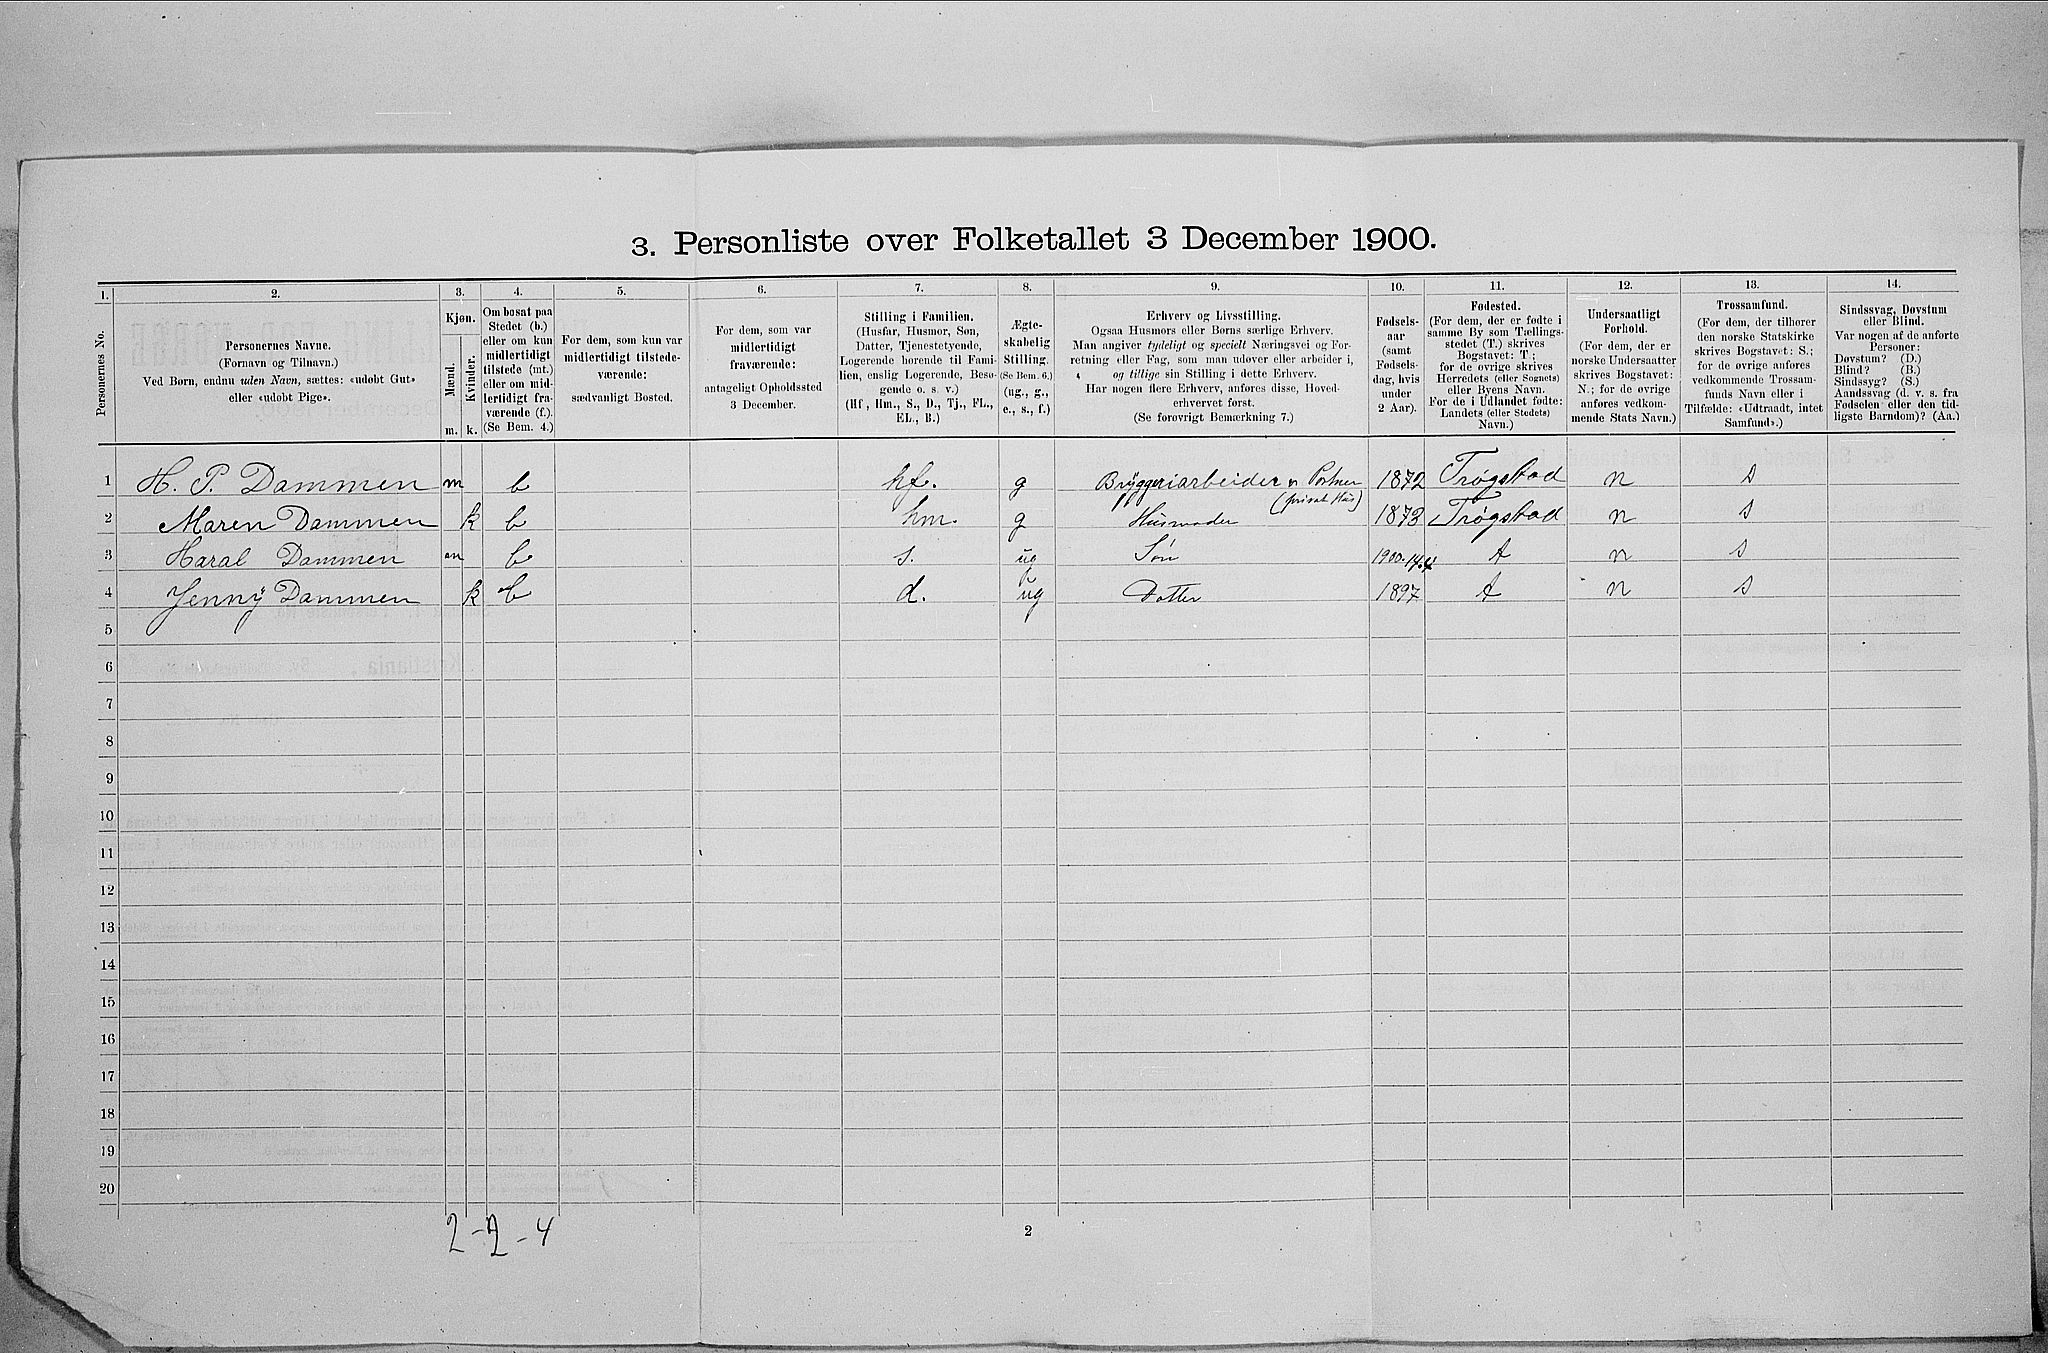 3. Personliste over Folketallet 3 December 1900.
1. 2. 3. 4. 5. 6. 7. 8. 9. 10. 11. 12. 13. 14.
Personernes No.
Personernes Navne.
(Fornavn og Tilnavn.)
Ved Børn, endnu uden Navn, sættes: «udøbt Gut»
eller «udøbt Pige».
Kjøn.
Mænd.
Kvinder.
m. k.
Om bosat paa
Stedet (b.)
eller om kun
midlertidigt
tilstede (mt.)
eller om mid-
lertidigt fra-
værende (f.).
(Se Bem. 4.)
For dem, som kun var
midlertidigt tilstede-
værende:
sædvanligt Bosted.
For dem, som var
midlertidigt
fraværende:
antageligt Opholdssted
3 December.
Stilling i Familien.
(Husfar, Husmor, Søn,
Datter, Tjenestetyende,
Logerende hørende til Fami-
lien, enslig Logerende, Besø-
gende o. s. v.)
(Hf., Hm., S., D., Tj., FL.,
EL., B.)
Ægte-
skabelig
Stilling.
(Se Bem. 6.)
(ug., g.,
e., s., f.)
Erhverv og Livsstilling.
Ogsaa Husmors eller Børns særlige Erhverv.
Man angiver tydeligt og specielt Næringsvei og For-
retning eller Fag, som man udøver eller arbeider i,
og tillige sin Stilling i dette Erhverv.
Har nogen flere Erhverv, anføres disse, Hoved-
erhvervet først.
(Se forøvrigt Bemærkning 7.)
Fødsels-
aar
(samt
Fødsels-
dag, hvis
under
2 Aar).
Fødested.
(For dem, der er fødte i
samme By som Tællings-
stedet (T.) skrives
Bogstavet: T.;
for de øvrige skrives
Herredets (eller Sognets)
eller Byens Navn.
For de i Udlandet fødte:
Landets (eller Stedets)
Navn.)
Undersaatligt
Forhold.
(For dem, der er
norske Undersaatter,
skrives Bogstavet:
N.; for de øvrige
anføres vedkom-
mende Stats Navn.)
Trossamfund.
(For dem, der tilhører
den norske Statskirke
skrives Bogstavet: S.;
for de øvrige anføres
vedkommende Trossam-
funds Navn eller i
Tilfælde: «Udtraadt, intet
Samfund».)
Sindssvag, Døvstum
eller Blind.
Var nogen af de anførte
Personer:
Døvstum? (D.)
Blind? (B.)
Sindssyg? (S.)
Aandssvag (d. v. s. fra
Fødselen eller den tid-
ligste Barndom)? (Aa.)
1 H. P. Dammen m b hf. g Bryggeriarbeider Portner (privat Hus) 1872 Trøgstad n s
2 Maren Dammen k b hm. g Husmoder 1873 Trøgstad n s
3 Haral Dammen m b s. ug Søn 1900-14.4 t n s
4 Jenny Dammen k b d. ug Datter 1897 t n s
5
6
7
8
9
10
11
12
13
14
15
16
17
18
19
20
2 - 2 - 4
2